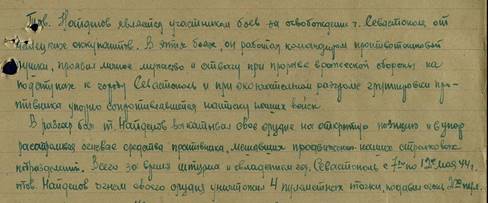 Тов. Найденов является участником боев за освобождение г. Севастополь от
немецких оккупантов. В этих боях, он работал командиром противотанковой
пушки, проявил мужество и отвагу при прорыве вражеской обороны на
подступах к городу Севастополь и при окончательном разгроме группировки про-
тивника упорно сопротивлявшейся натиску наших войск.
В разгар боя т. Найденов выкатывал свое орудие на открытую позицию и в упор
расстреливал огневые средства противника, мешавших продвижению наших стрелковых
подразделений. Всего за время штурма и овладения гор. Севастополь с 7го по 12ое мая 44 г.
тов. Найденов огнем своего орудия уничтожил 4 пулеметных точки, подавил огонь 2х